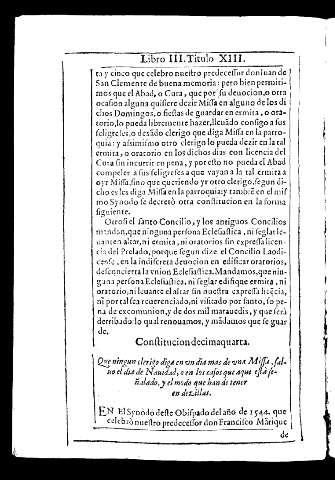 Libro III. Titulo XIII.
ta y cinco que celebro nuestro predecessor don Iuan de
San Clemente de buena memoria: pero bien permiti-
mos que el Abad, o Cura, que por su deuocion, o otra
ocasion alguna quisiere dezir Missa en alguno de los di
chos Domingos, o fiestas de guardar en ermita, o ora-
torio, lo pueda libremente hazer, lleuãdo consigo a sus
feligreses, o dexãdo clerigo que diga Missa en la parro-
quia: y assimismo otro clerigo lo pueda dezir en la tal
ermita, o oratorio en los dichos dias con licencia del
Cura sin incurrir en pena, y por esto no pueda el Abad
compeler a sus feligreses a que vayan a la tal ermita a
oyr Missa, sino que queriendo yr otro clerigo, segun di-
cho es les diga Missa en la parroquia: y tambiẽ en el mis
mo Synodo se decretò otra constitucion en la forma
siguiente.
Otrosi el santo Concilio, y los antiguos Concilios
mandan, que ninguna persona Eclesiastica, ni seglar le-
uanten altar, ni ermita, ni oratorios sin expressa licen-
cia del Prelado, porque segun dize el Concilio Laodi-
cense, en la indiscreta deuocion en edificar oratorios,
desconcierta la vnion Eclesiastica. Mandamos, que nin-
guna persona Eclesiastica, ni seglar edifique ermita, ni
oratorio, ni leuante el altar sin nuestra expressa licẽcia,
ni por tal sea reuerenciado, ni visitado por santo, so pe-
na de excomunion, y de dos mil marauedis, y que serà
derribado: lo qual renouamos, y mãdamos que se guar
de.
Constitucion decimaquarta.
Que ningun clerigo diga en vn dia mas de vna Missa, sal-
uo el dia de Nauidad, o en los casos que aqui està se-
ñalado, y el modo que han de tener
en dezillas.
EN El Synodo deste Obispado del año de 1544. que
celebrò nuestro predecessor don Francisco Mãrique
de